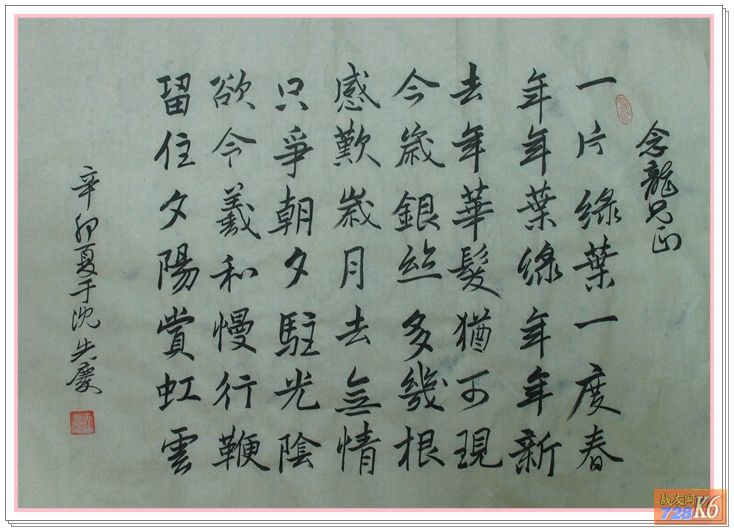 念龍兄正
一片綠葉一度春
年年葉綠年年新
去年華髮猶可現
今歲銀絲多幾根
感歎歲月去無情
只爭朝夕駐光陰
欲令羲和慢行鞭
留住夕陽賞虹雲
辛卯夏于沈先慶
战友网
728K6